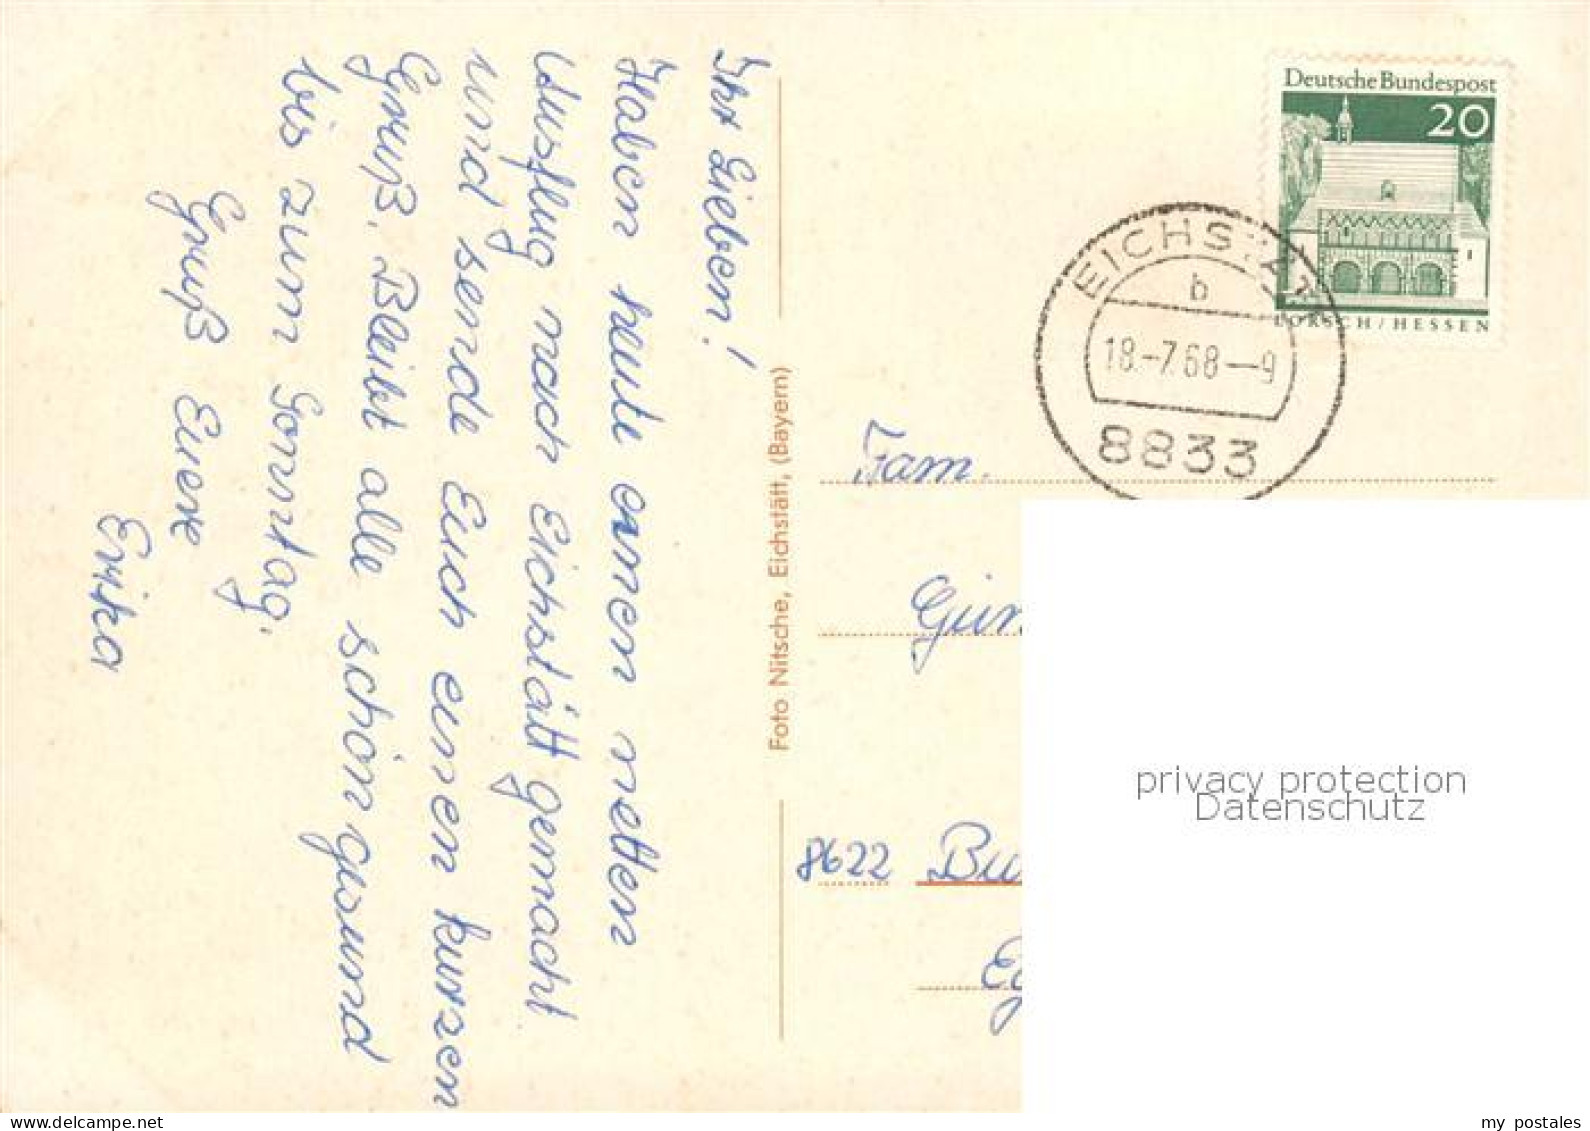 Ihr Lieben!
Haben heute einen netten
Ausflug nach Eichstätt gemacht
und sende Euch einen kurzen
Gruß. Bleibt alle schön gesund
bis zum Sonntag.
Gruß Euere
Erika
Foto Nitsche, Eichstätt, (Bayern)
Deutsche Bundespost
20
LORSCH/HESSEN
EICHSTÄTT
b
18.-7.68-9
8833
Fam.
8622
privacy protection
Datenschutz
my_postales